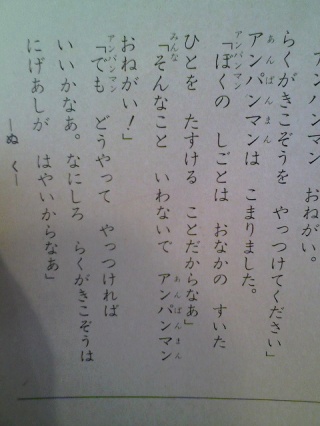 アンパンマン おねがい。
らくがきこぞうを やっつけてください」
アンパンマンは こまりました。
「ぼくの しごとは おなかの すいた
ひとを たすける ことだからなあ」
「そんなこと いわないで アンパンマン
おねがい!」
「でも どうやって やっつければ
いいかなあ。なにしろ らくがきこぞうは
にげあしが はやいからなあ」
―ぬ く―